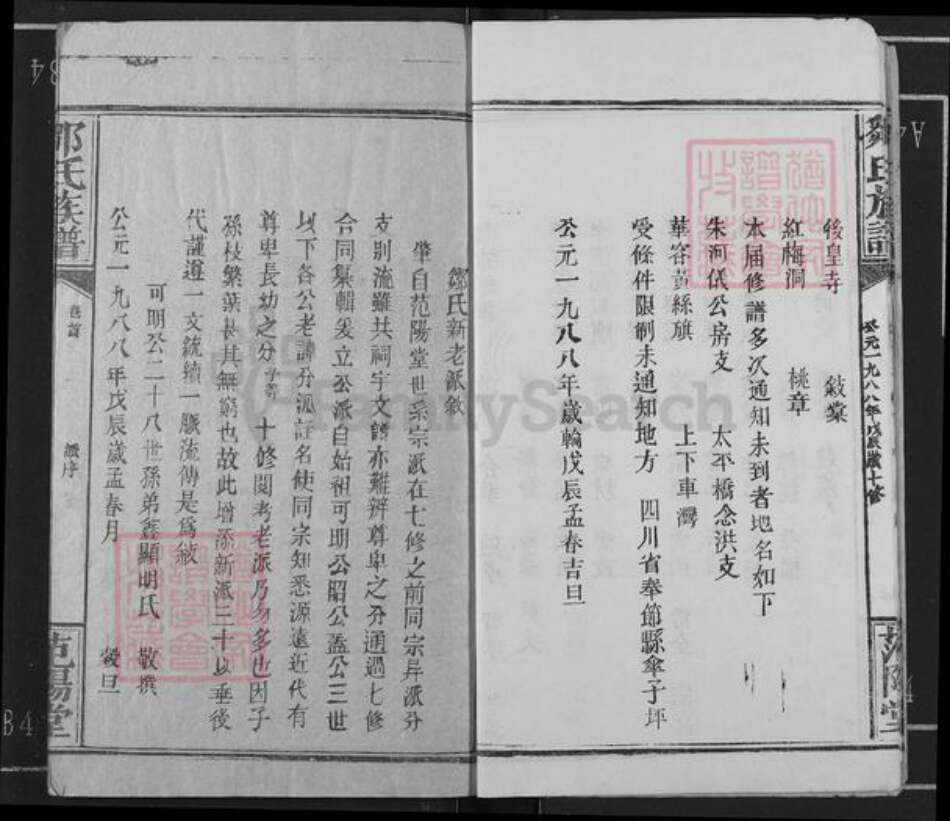 鄒氏族譜
公元一九八八年戊辰歲十修
范陽堂
後皇寺 敍棠
紅梅洞 桃章
本届修譜多次通知未到者地名如下
朱河儀公房支 太平橋念洪支
華容黃絲旗 上下車灣
受條件限制未通知地方 四川省奉節縣傘子坪
公元一九八八年歲輪戊辰孟春吉旦
鄒氏新老派敘
肇自范陽堂世系宗派在七修之前同宗异派分
支別流雖共祠宇文譜亦難辨尊卑之分通過七修
合同纂輯爰立公派自始祖可明公昭公盖公三世
以下各公老譜分派註名使同宗知悉源遠近代有
尊卑長幼之分 十修閱考老派乃勿多也因子
孫枝繁葉長其無窮也故此增添新派三十以垂後
代謹遵一文統續一脈流傳是爲敘
可明公二十八世孫弟鑫顯明氏 敬撰
公元一九八八年戊辰歲孟春月 穀旦
鄒氏族譜
卷首
派序
范陽堂
FamilySearch
B4
A4
B4